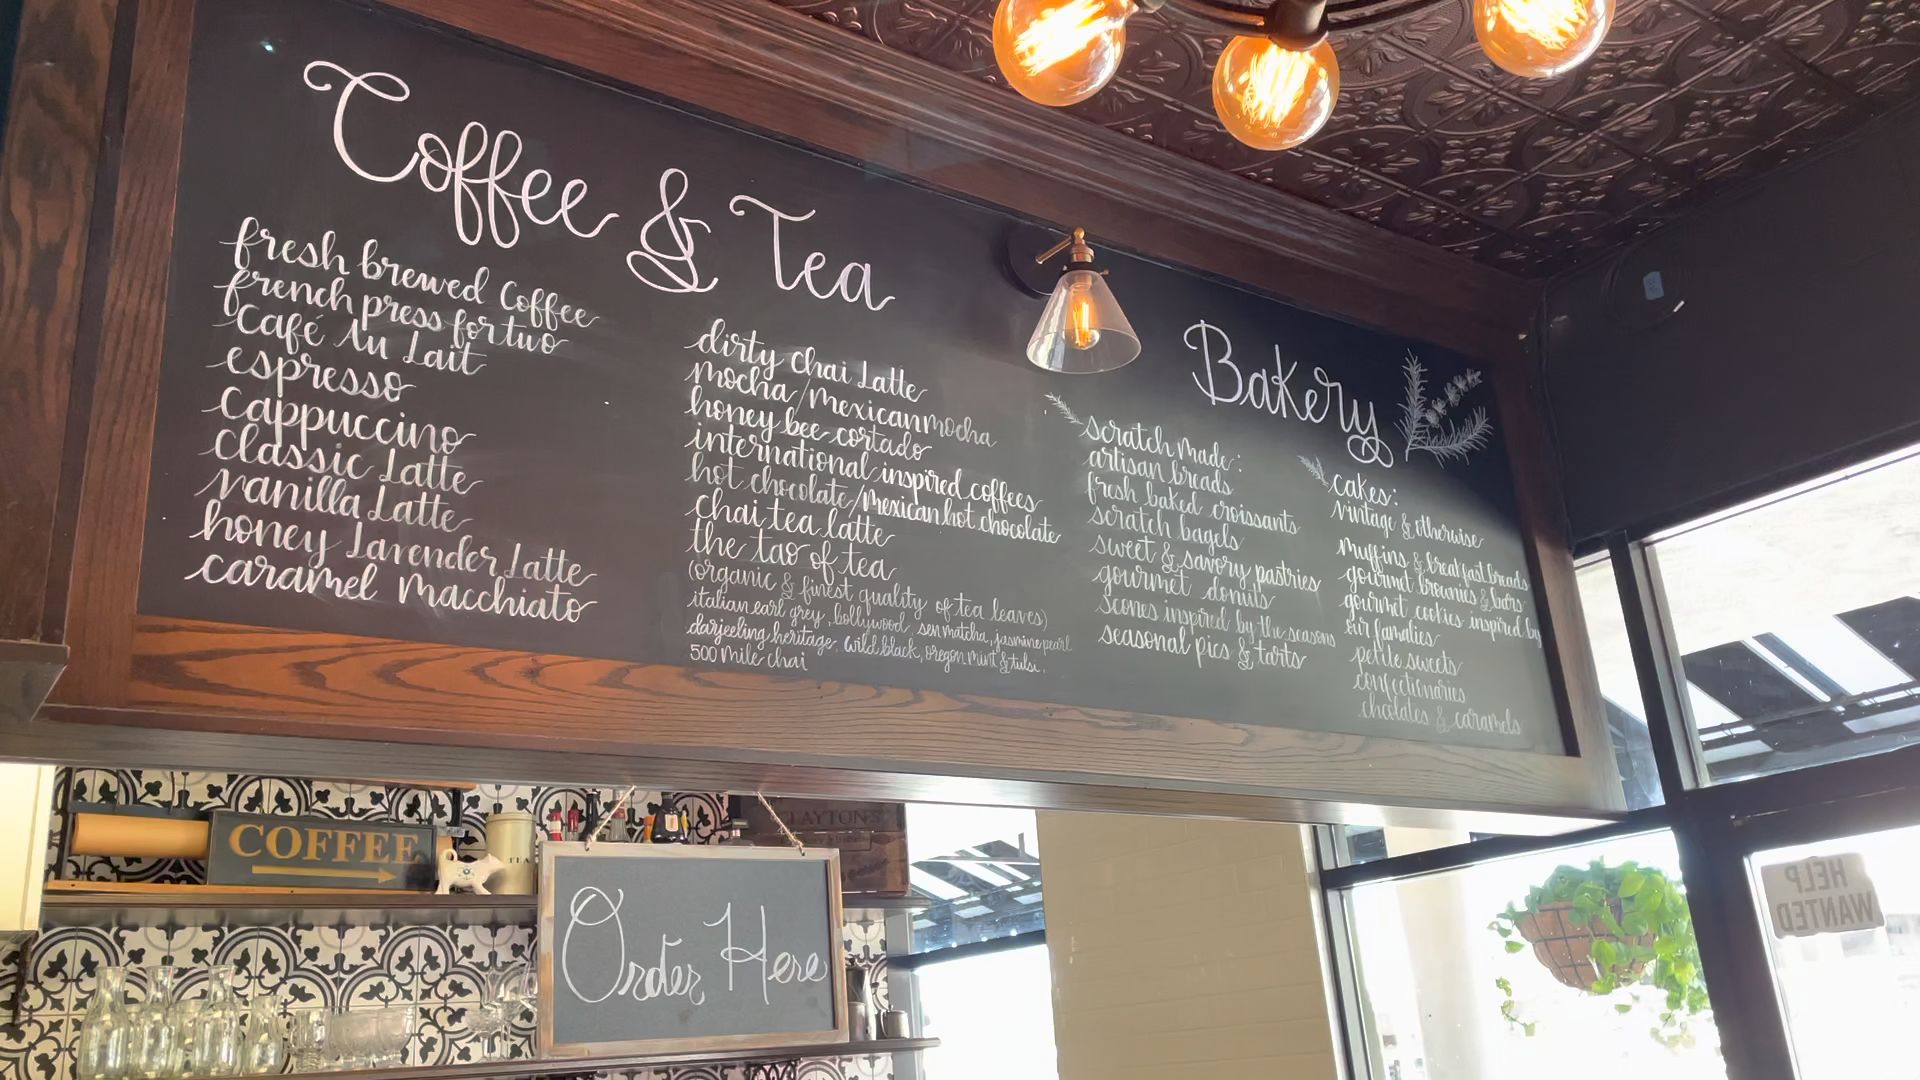 Coffee & Tea
fresh brewed Coffee
french press for two
Café Au Lait
espresso
Cappuccino
Classic Latte
vanilla Latte
honey Lavender Latte
caramel Macchiato
dirty Chai Latte
mocha/mexican mocha
honey bee cortado
international inspired coffees
hot chocolate/Mexican hot chocolate
chai tea latte
the tao of tea
(organic & finest quality of tea leaves)
italian earl grey, bollywood, sen matcha, jasmine pearl
darjeeling heritage, wild black, oregon mint & tulsi,
500 mile chai
Bakery
scratch made:
artisan breads
fresh baked croissants
scratch bagels
sweet & savory pastries
gourmet donuts
scones inspired by the seasons
seasonal pies & tarts
cakes:
vintage & otherwise
Muffins & breakfast breads
gourmet brownies & bars
gourmet cookies inspired by
our families
petite sweets
confectionaries
chcolates & caramels
COFFEE
TEA
CLAYTON'S
Order Here
HELP
WANTED